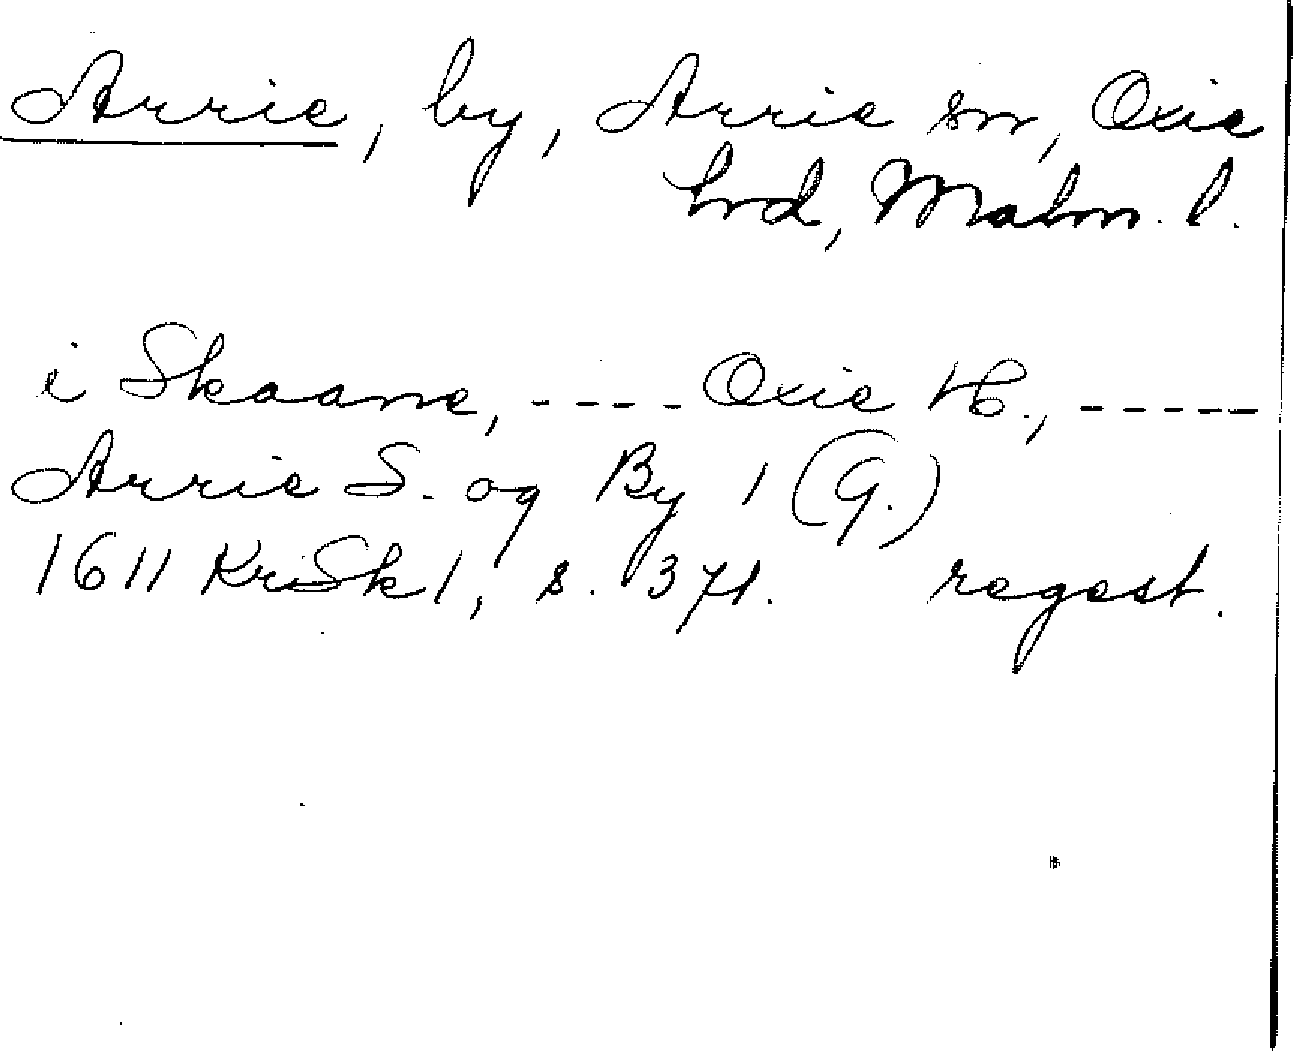 Arrie, by, Arrie sn, Oxie
hrd, Malm. l.
i Skaane, ---- Oxie H., -----
Arrie S. og By 1 (G.)
1611 KriSk1, s. 371. regest.